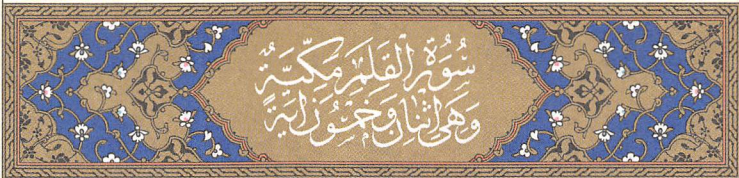 سُورَةُ الْقَلَمِ مَكِّيَّةٌ
وَهِيَ اثْنَانِ وَخَمْسُونَ اٰيَةً